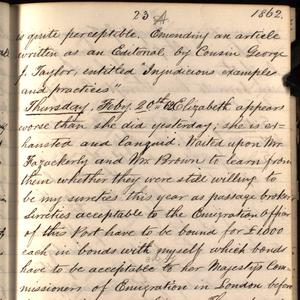 23 A 1862.
is quite perceptible. Emending an article
written as an Editorial by Cousin George
J. Taylor, entitled "Injudicious examples
and practices"
Thursday, Feby. 20th Elizabeth appears
worse than she did yesterday; she is ex-
hausted and languid. Waited upon Mr
Fazackerly and Wm Brown to learn from
them whether they were still willing to
be my sureties this year as passage broker.
Sureties acceptable to the Emigration Officer
of this Port have to be bound for £1000
each in bonds with myself which bonds
have to be acceptable to her Majesty's Com-
missioners of Emigration in London before